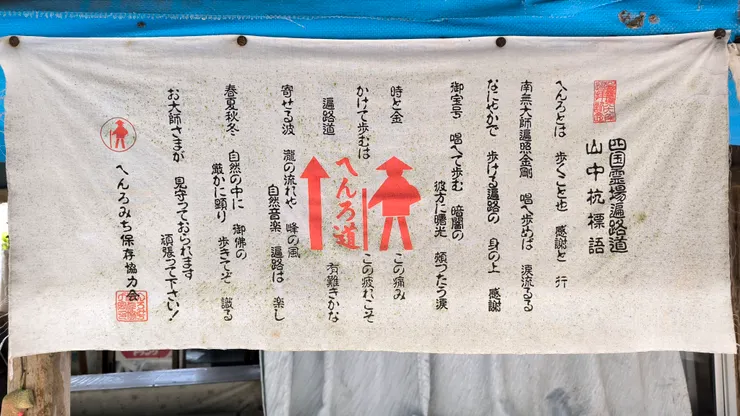 四国霊場遍路道
山中杭標語
へんろとは 歩くこと也 感謝と 行
南無大師遍照金剛 唱へ歩めば 涙流るる
なにやかで 歩ける遍路の 身の上 感謝
御宝号 唱へて歩む 暗闇の
彼方に曙光 頬つたう涙
時と金
かけて歩むは この痛み
この疲れこそ
遍路道 有難きかな
へんろ道
寄せる波 瀧の流れや 峰の風
自然音楽 遍路は 楽し
春夏秋冬 自然の中に 御佛の
厳かに顕り 歩きてぞ 識る
お大師さまが 見守っておられます
頑張って下さい!
へんろみち保存協力会